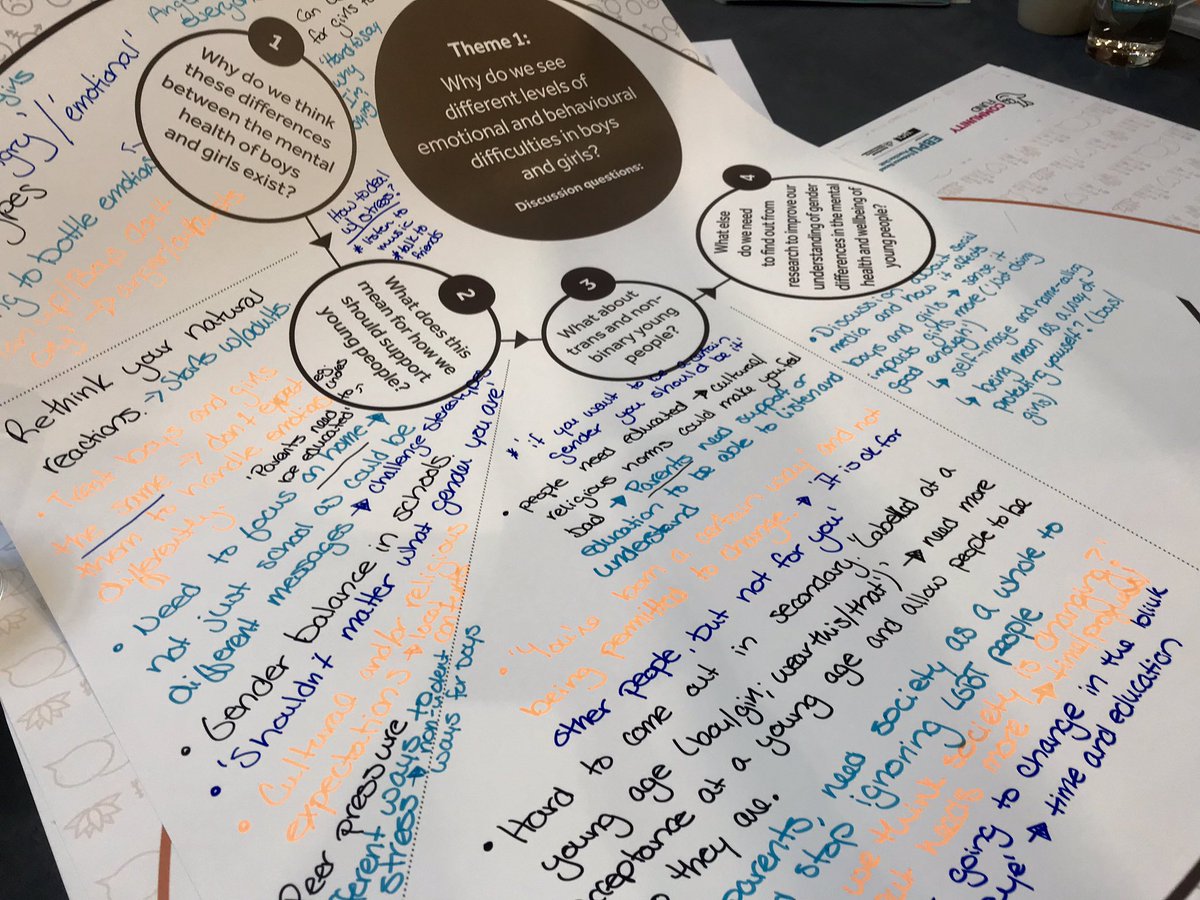 Theme 1:
Why do we see
different levels of
emotional and behavioural
difficulties in boys
and girls?
Discussion questions:
1
Why do we think
these differences
between the mental
health of boys
and girls exist?
girls
'emotional'
to bottle emotions
How to deal
w/ stress?
* listen to
music
* talk to
friends
2
What does this
mean for how we
should support
young people?
Re-think your natural
reactions. → Starts w/adults
• Treat boys and girls
the same → don't expect
them to handle emotions
differently.
'Parents need to
be educated too'
• Need to focus on home →
not just school as could be
different messages → challenge stereotypes
• Gender balance in schools.
• 'Shouldn't matter what gender you are'
• Cultural and/or religious
expectations → local context
Peer pressure
different ways to
stress → non-violent
ways for boys
3
What about
trans and non-
binary young
people?
* 'if you want to be a certain
gender you should be it'
• people need educated → cultural
religious norms could make you feel
bad → Parents need support or
education to be able to listen and
understand
• 'You're born a certain way' and not
being permitted to change. → 'It is ok for
other people, but not for you'
• Hard to come out in secondary 'Labelled at a
young age (boy/girl; wear this/that)' → need more
acceptance at a young age and allow people to be
who they are.
parents, need society as a whole to
stop ignoring LGBT people
we think society is changing?
needs more → time/popular
going to change in the blink
eye' → time and education
4
What else
do we need
to find out from
research to improve our
understanding of gender
differences in the mental
health and wellbeing of
young people?
• Discussion about social
media and how it affects
boys and girls → sense it
impacts girls more ('not being
good enough')
↳ self-image and name-calling
↳ being mean as a way of
protecting yourself? (boys/
girls)
COMMUNITY
FUND